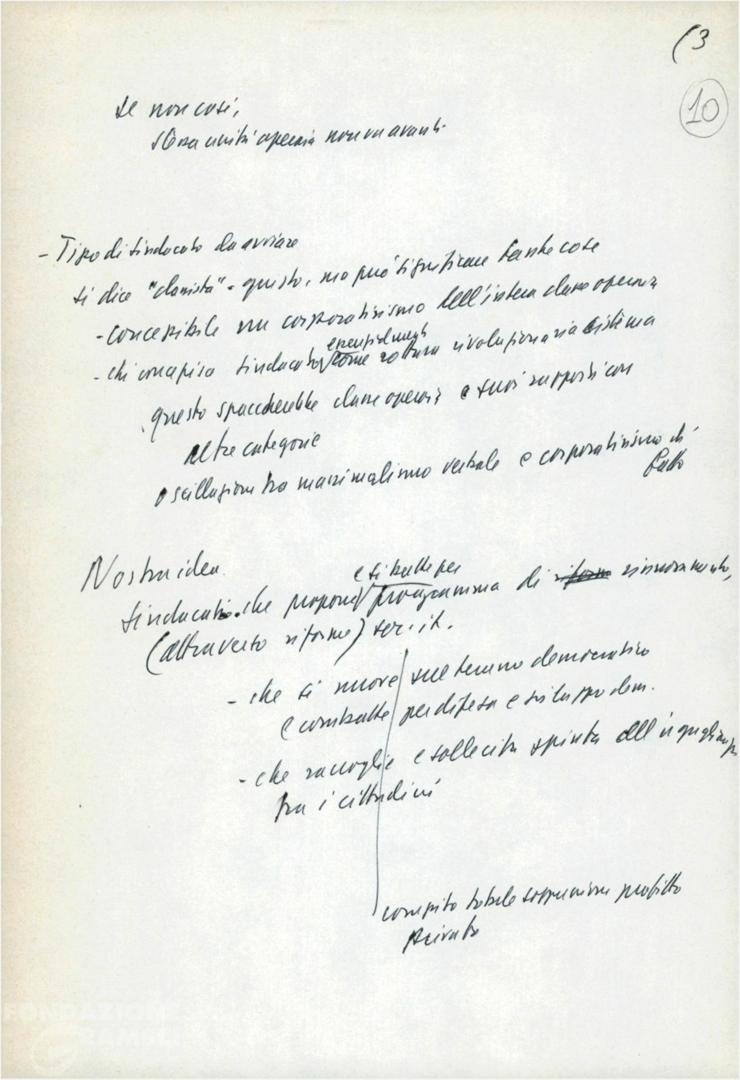 (3
10
se non così,
stessa unità operaia non va avanti.
- Tipo di sindacato da avviare
si dice "classista" - questo, ma può significare tante cose
- concepibile un corporativismo dell'intera classe operaia
- chi concepisce sindacato come rottura rivoluzionaria sistema
questo spaccherebbe classe operaia e suoi rapporti con
altre categorie
oscillazione tra massimalismo verbale e corporativismo di
fatto
Nostra idea
e si batte per
sindacato che propone programma di riforma rinnovamento,
(attraverso riforme) soc. it.
- che si muove sul terreno democratico
e combatte per difesa e sviluppo dem.
- che raccoglie e sollecita spinta all'uguaglianza
tra i cittadini
compito totale soppressione profitto
privato
FONDAZIONE
GRAMSCI